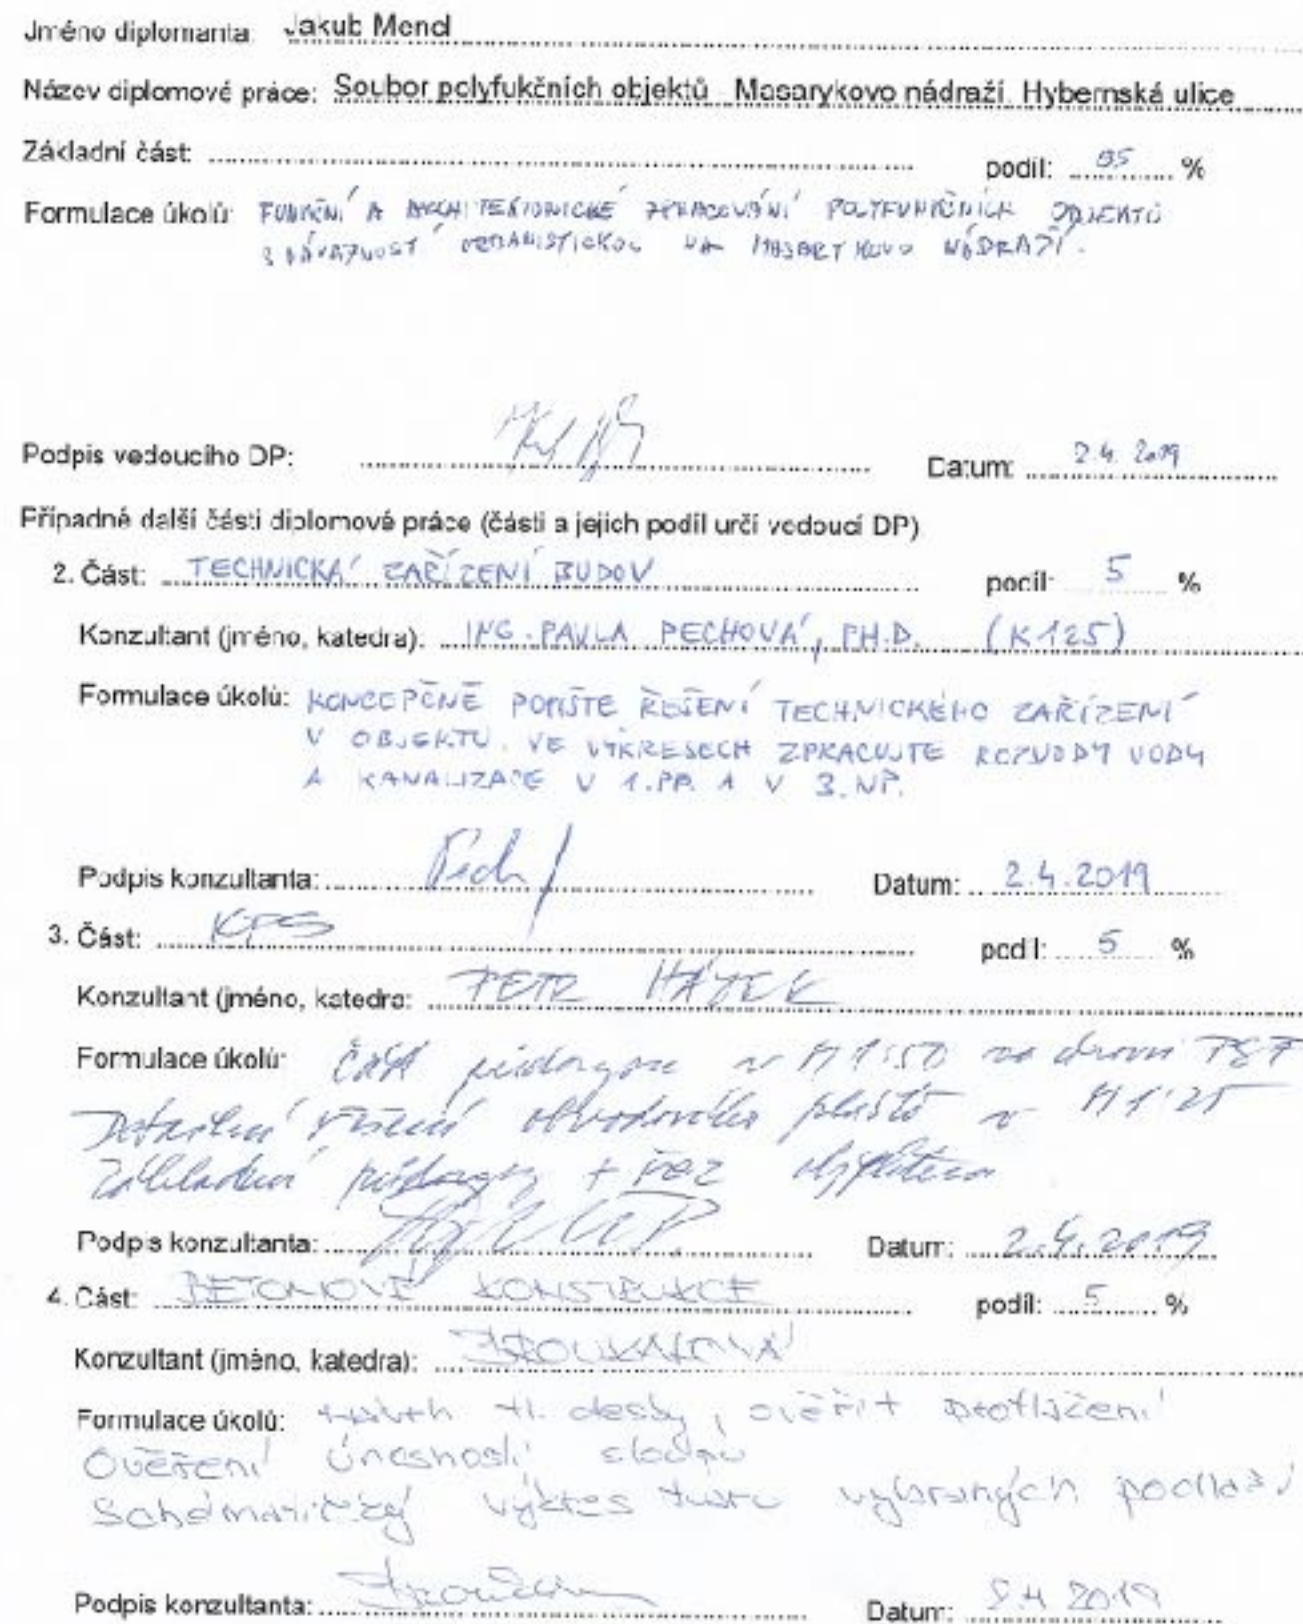 Jméno diplomanta: Jakub Mencl
Název diplomové práce: Soubor polyfukčních objektů Masarykovo nádraží, Hybernská ulice
Základní část: podíl: 85 %
Formulace úkolů: FUNKČNÍ A ARCHITEKTONICKÉ ZPRACOVÁNÍ POLYFUNKČNÍCH OBJEKTŮ
S NÁVAZNOSTÍ URBANISTICKOU NA MASARYKOVO NÁDRAŽÍ.
Podpis vedoucího DP: Datum: 2.4. 2019
Případné další části diplomové práce (části a jejich podíl určí vedoucí DP)
2. Část: TECHNICKÁ ZAŘÍZENÍ BUDOV podíl: 5 %
Konzultant (jméno, katedra): ING. PAVLA PECHOVÁ, PH.D. (K125)
Formulace úkolů: KONCEPČNĚ POPIŠTE ŘEŠENÍ TECHNICKÉHO ZAŘÍZENÍ
V OBJEKTU. VE VÝKRESECH ZPRACUJTE ROZVODY VODY
A KANALIZACE V 1.PP. A V 3.NP.
Podpis konzultanta: Datum: 2.4.2019
3. Část: KPS podíl: 5 %
Konzultant (jméno, katedra: PETR HÁJEK
Formulace úkolů: Část půdorysu v M 1:50 na úrovni
Detailní řešení obvodového pláště v M 1:25
Základní půdorysy + řez objektem
Podpis konzultanta: Datum: 2.4.2019
4. Část: BETONOVÉ KONSTRUKCE podíl: 5 %
Konzultant (jméno, katedra):
Formulace úkolů: Návrh tl. desky, ověřit protlačení
Ověření únosnosti sloupu
Schématický výkres tvaru vybraných podlaží
Podpis konzultanta: Datum: 2.4 2019